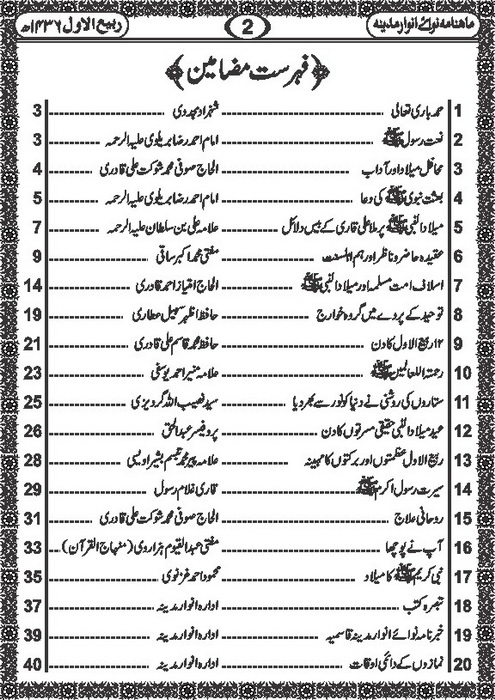 ماہنامہ نوائے انوار مدینہ 2 ربیع الاول ۱۴۳۶ھ
﴿فہرست مضامین﴾
1 حمد باری تعالی ........ شہزاد مجددی ........ 3
2 نعت رسول ﷺ ........ امام احمد رضا بریلوی علیہ الرحمہ ........ 3
3 محافل میلاد اور آداب ........ الحاج صوفی محمد شوکت علی قادری ........ 4
4 بعثت نبوی ﷺ کی دعا ........ امام احمد رضا بریلوی علیہ الرحمہ ........ 5
5 میلاد النبی ﷺ پر ملا علی قاری کے بیس دلائل ........ علامہ علی بن سلطان علیہ الرحمہ ........ 7
6 عقیدہ حاضر و ناظر اور ہم اہلسنت ........ مفتی محمد اکبر ساقی ........ 9
7 اسلاف امت مسلمہ اور میلاد النبی ﷺ ........ الحاج امتیاز احمد قادری ........ 14
8 توحید کے پردے میں گروہ خوارج ........ حافظ اظہر سہیل عطاری ........ 19
9 ۱۲ ربیع الاول کا دن ........ حافظ محمد قاسم علی قادری ........ 21
10 رحمۃ اللعالمین ﷺ ........ علامہ منیر احمد یوسفی ........ 23
11 ستاروں کی روشنی نے دنیا کو نور سے بھر دیا ........ سید نصیب اللہ گردیزی ........ 25
12 عید میلاد النبی حقیقی مسرتوں کا دن ........ پروفیسر عبدالحق ........ 26
13 ربیع الاول عظمتوں اور برکتوں کا مہینہ ........ علامہ پیر محمد تبسم بشیر اویسی ........ 28
14 سیرت رسول اکرم ﷺ ........ قاری غلام رسول ........ 29
15 روحانی علاج ........ الحاج صوفی محمد شوکت علی قادری ........ 31
16 آپ نے پوچھا ........ مفتی عبدالقیوم ہزاروی (منہاج القرآن) ... 33
17 نبی کریم ﷺ کا میلاد ........ محمود احمد غزنوی ........ 35
18 تبصرہ کتب ........ ادارہ انوار مدینہ ........ 37
19 خبر نامہ نوائے انوار مدینہ قاسمیہ ........ ادارہ انوار مدینہ ........ 39
20 نمازوں کے دائمی اوقات ........ ادارہ انوار مدینہ ........ 40